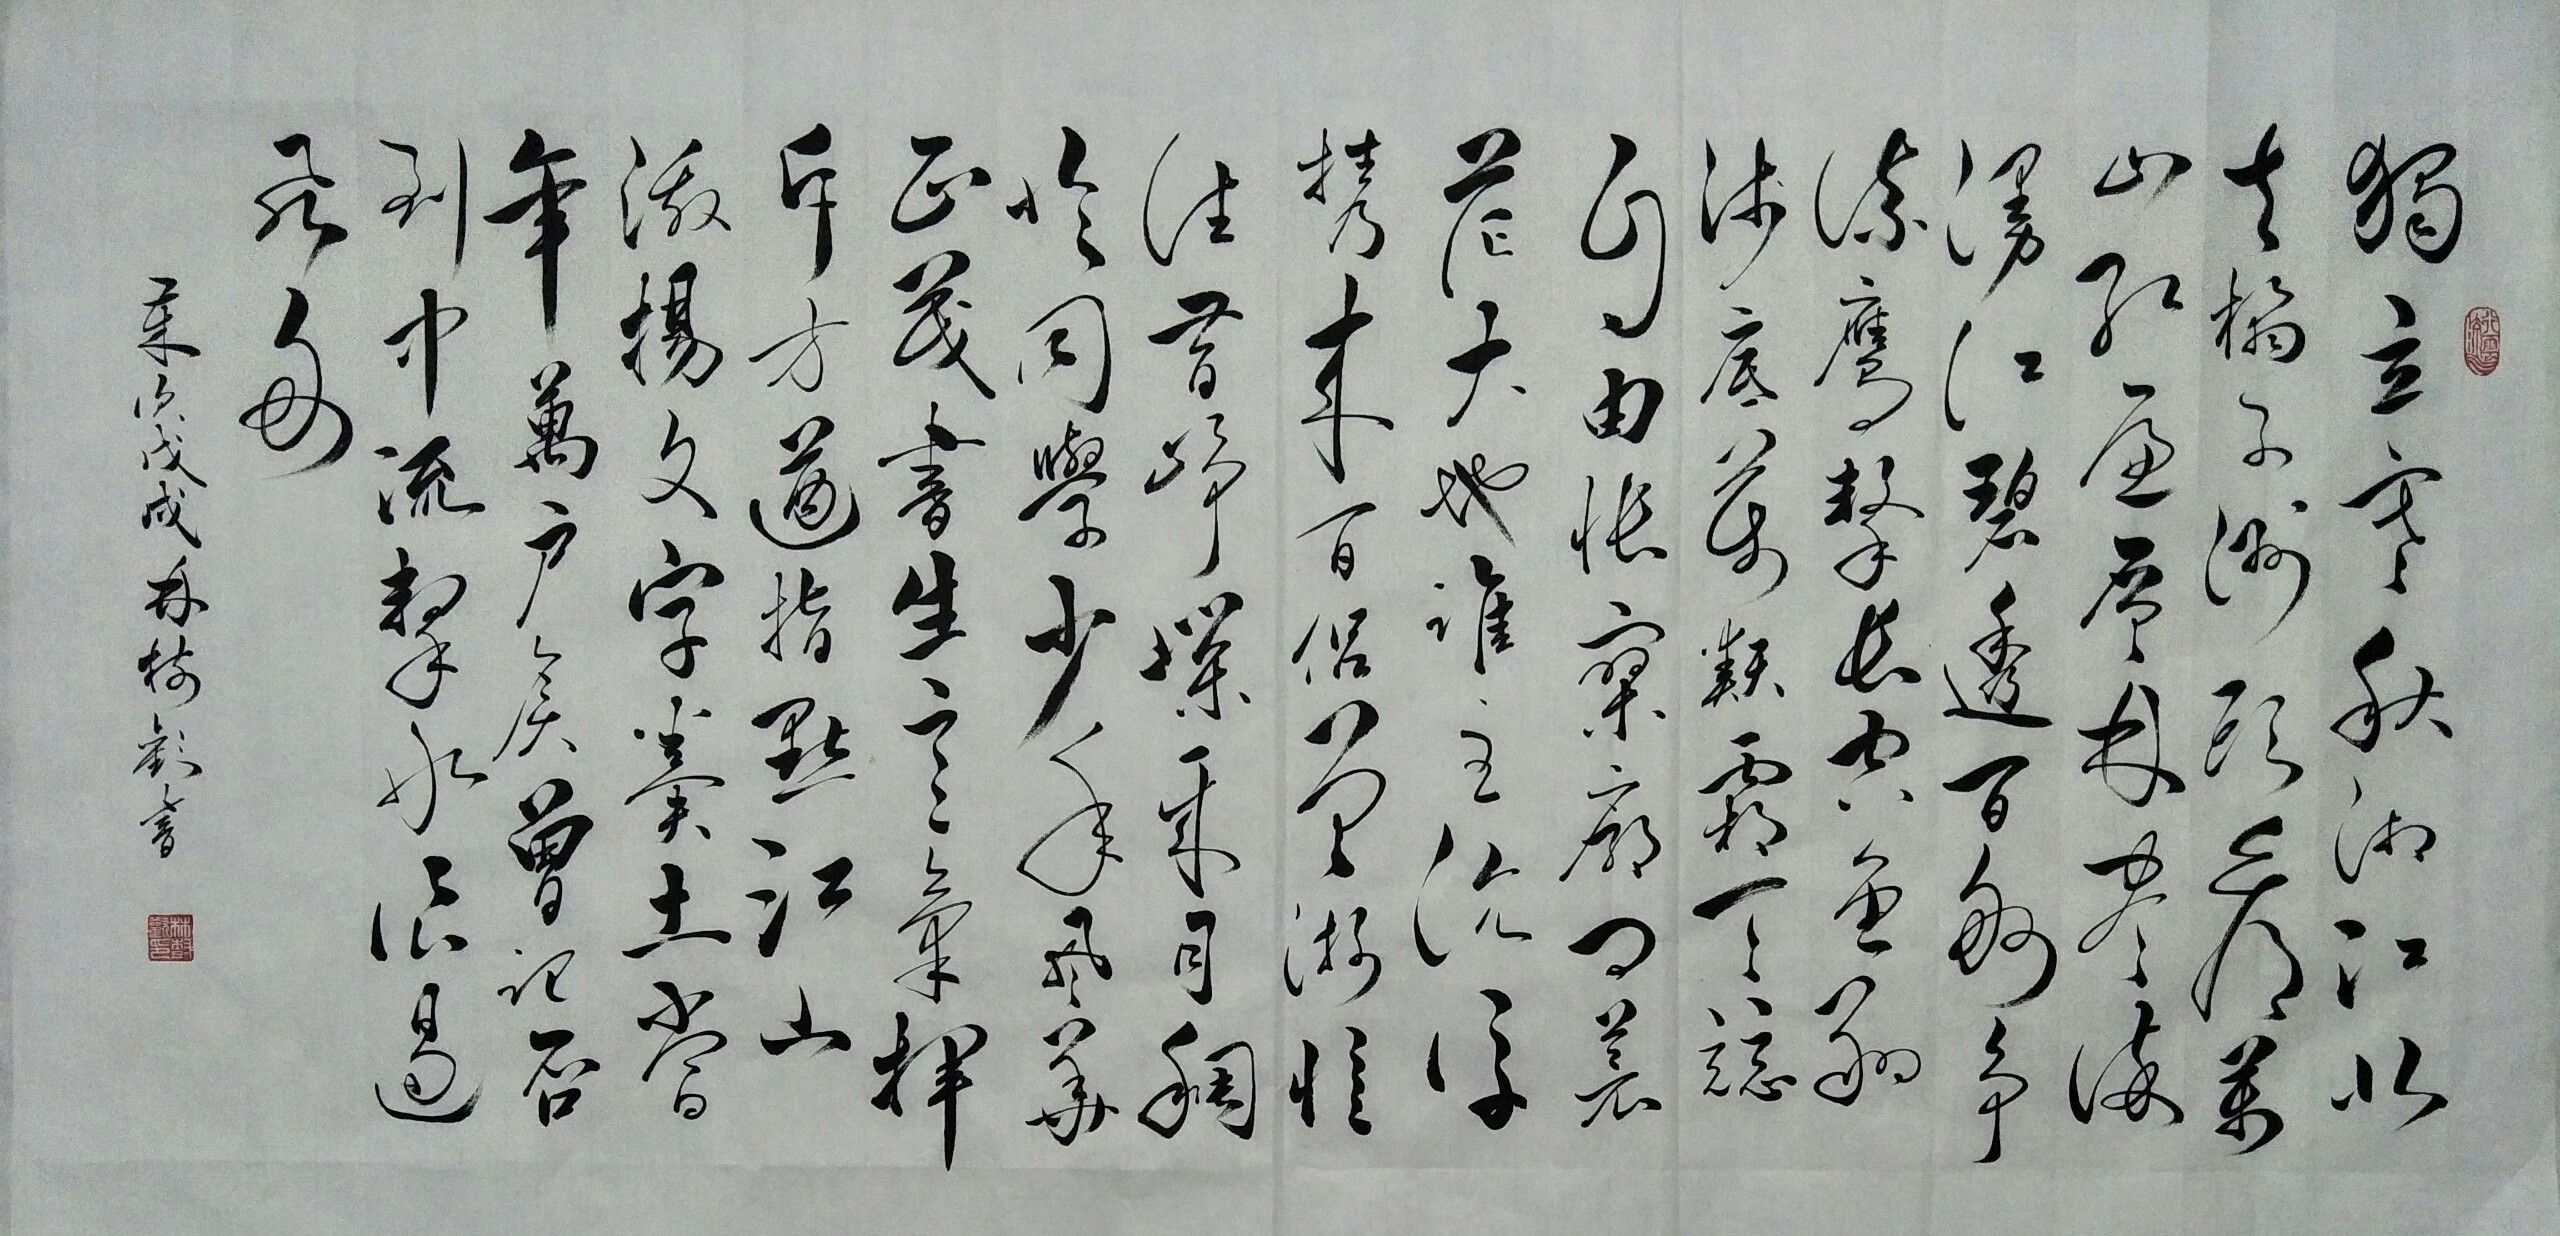 獨立寒秋湘江北
去橘子洲頭看萬
山紅遍層林盡染
漫江碧透百舸争
流鷹擊長空魚翔
淺底萬類霜天競
自由悵寥廓問蒼
茫大地誰主沉浮
携來百侣曾游憶
往昔崢嶸歲月稠
恰同學少年風華
正茂書生意氣揮
斥方遒指點江山
激揚文字糞土當
年萬户侯曾記否
到中流擊水浪遏
飛舟
歲次戊戌林樹書